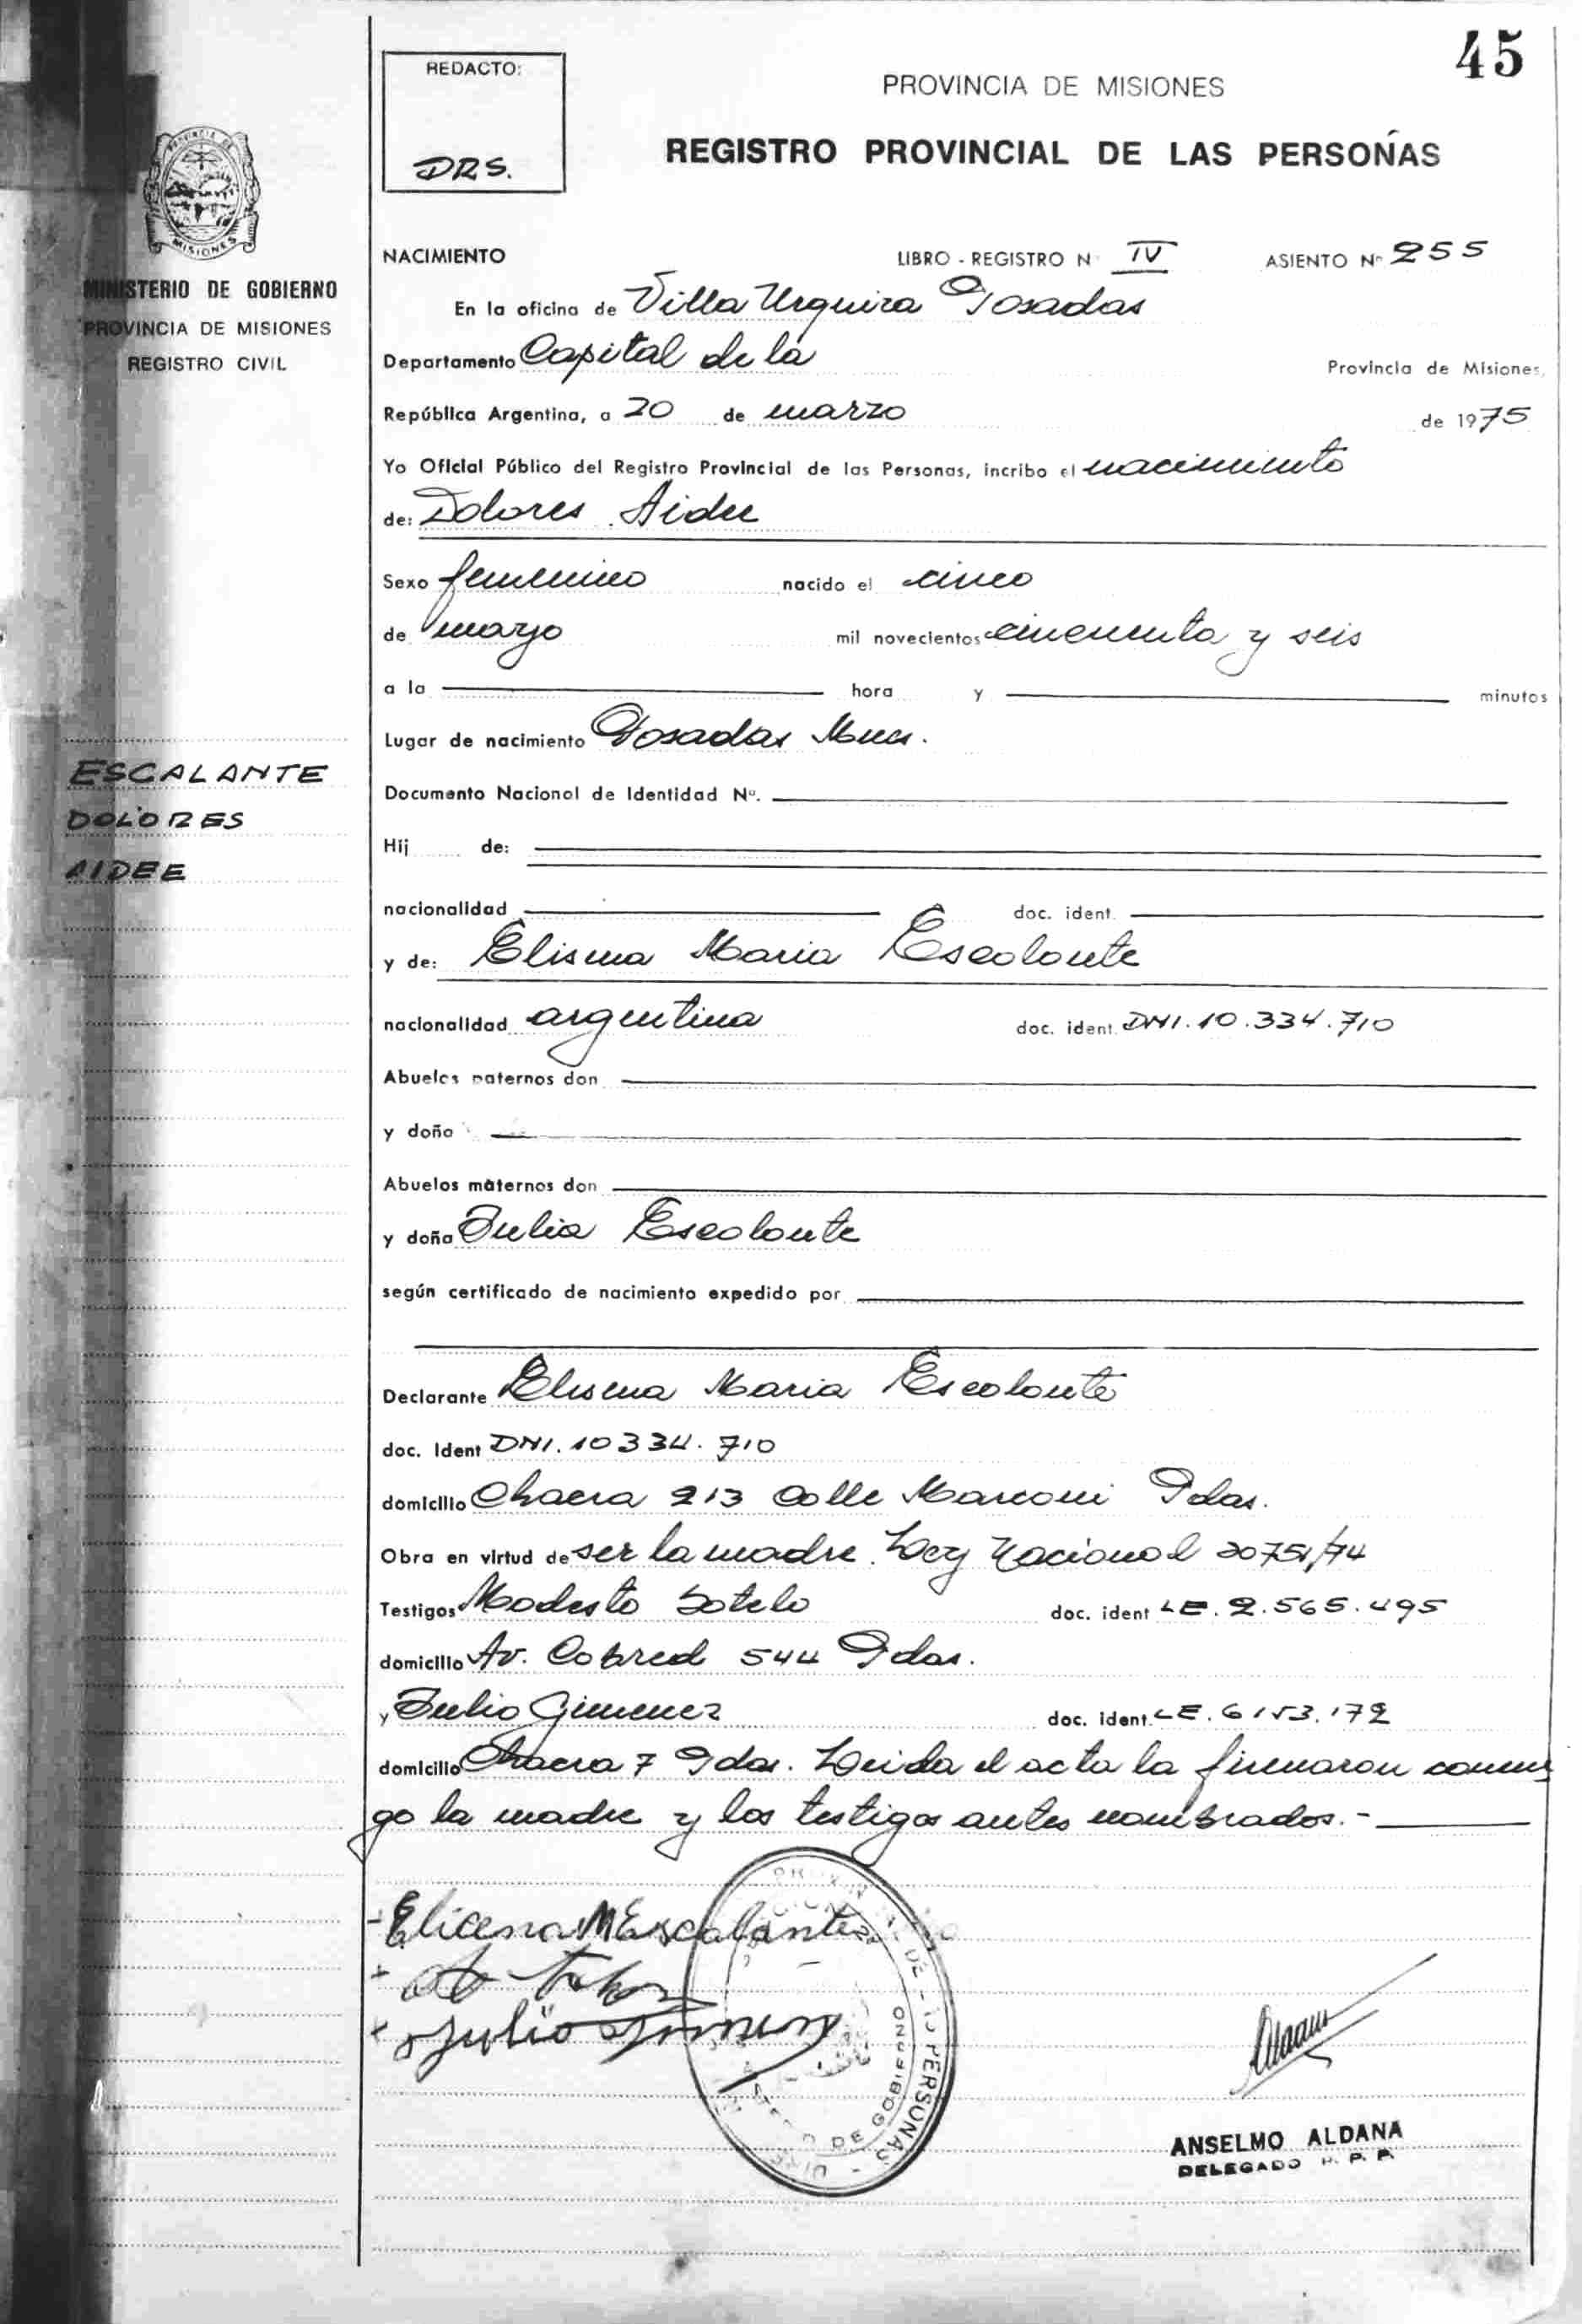 45
REDACTO:
DRS.
PROVINCIA DE MISIONES
REGISTRO PROVINCIAL DE LAS PERSONAS
MISIONES
MINISTERIO DE GOBIERNO
PROVINCIA DE MISIONES
REGISTRO CIVIL
NACIMIENTO LIBRO - REGISTRO N IV ASIENTO Nº 255
En la oficina de Villa Urquiza Posadas
Departamento Capital de la Provincia de Misiones,
República Argentina, a 20 de marzo de 1975
Yo Oficial Público del Registro Provincial de las Personas, incribo el nacimiento
de: Dolores Aidee
Sexo femenino nacido el cinco
de mayo mil novecientos cincuenta y seis
a la hora y minutos
Lugar de nacimiento Posadas Mnes.
ESCALANTE
DOLORES
AIDEE
Documento Nacional de Identidad Nº.
Hij de:
nacionalidad doc. ident.
y de: Elisena Maria Escalante
nacionalidad argentina doc. ident. DNI. 10.334.710
Abuelos paternos don
y doña
Abuelos maternos don
y doña Julia Escalante
según certificado de nacimiento expedido por
Declarante Elisena Maria Escalante
doc. Ident DNI. 10334.710
domicilio Chacra 213 Calle Marconi Pdas.
Obra en virtud de ser la madre. Ley Nacional 20751/74
Testigos Modesto Sotelo doc. ident LE. 2.565.495
domicilio Av. Cabred 544 Pdas.
y Julio Gimenez doc. ident. LE. 6153.172
domicilio Chacra 7 Pdas. Leida el acta la firmaron conmi
go la madre y los testigos antes nombrados.-
Elicena M Escalante
Julio Jimenez
DE GOBIERNO
PERSONAS
ANSELMO ALDANA
DELEGADO R. P. P.